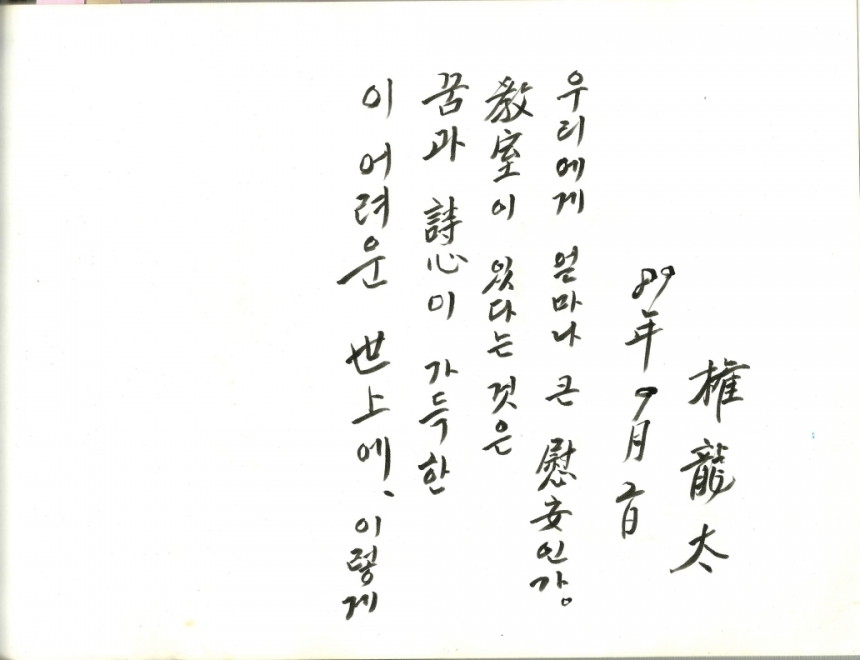 이 어려운 世上에, 이렇게
꿈과 詩心이 가득한
教室이 있다는 것은
우리에게 얼마나 큰 慰安인가.
89年 9月 2日
権龍太